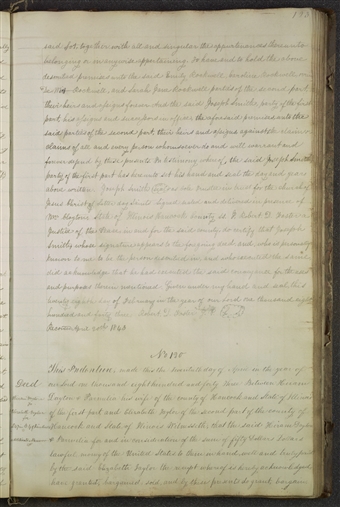 said Lot together with all and singular the appurtenances thereunto
belonging or in anywise appertaining To have and to hold the above
described premises unto the said Henry Rockwell,
Rockwell, and Sarah Jane Rockwell parties of the second part
their heirs and assigns forever And the said Joseph Smith party of the first
part, his
said parties of the second part their heirs and assigns against the claim or
claims of all and every person whomsoever do and will warrant and
forever defend by these presents In testimony whereof, the said Joseph Smith
party of the first part has hereunto set his hand and seal the day and year
above written Joseph Smith sole Trustee in trust for the church of
Jesus Christ of Latter day Saints Signed sealed and delivered in presence of
Wm Clayton State of Illinois Hancock County ss I Robert D. Foster a
Justice of the Peace in and for the said county do certify that Joseph
Smith, whose signature appears to the foregoing deed and who is personally
known to me to be the person described in and who executed the same
did acknowledge that he had executed the said conveyance for the uses
and purposes therein mentioned Given under my hand and seal this
twenty eighth day of February in the year of our Lord one thousand eight
hundred and forty three Robert D Foster J.P.
Recorded 20th 1843
This Indenture, made this the twentieth day of April in the year of
our Lord one thousand eight hundred and forty three Between Hiram
Deed
Dayton & Permelia his wife of the county of Hancock and State of Illinois
of the first part and Elizabeth Taylor of the second part of the county of
Hancock and State of Illinois Witnesseth, that the said Hiram Dayton
& Permelia for and in consideration of the sum of fifty Dollars
lawful money of the United States to them in hand, well and truly paid
by the said Elizabeth Taylor the receipt whereof is hereby acknowledged
have granted, bargained, sold, and by these presents do grant, bargain